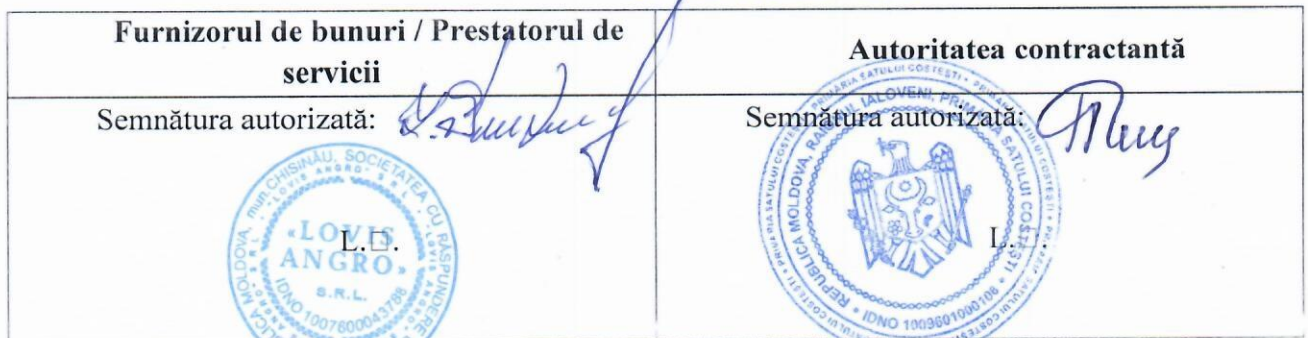 Furnizorul de bunuri / Prestatorul de
servicii
Autoritatea contractantă
Semnătura autorizată:
Semnătura autorizată:
L.□.
L.□.
MOLDOVA, mun.CHIŞINĂU, SOCIETATEA CU RĂSPUNDERE
"LOVIS ANGRO" S.R.L.
«LOVIS
ANGRO»
S.R.L.
IDNO 1007600043786
PRIMĂRIA SATULUI COSTEŞTI
REPUBLICA MOLDOVA, RAIONUL IALOVENI, PRIMĂRIA SATULUI COSTEŞTI
IDNO 1009601000106